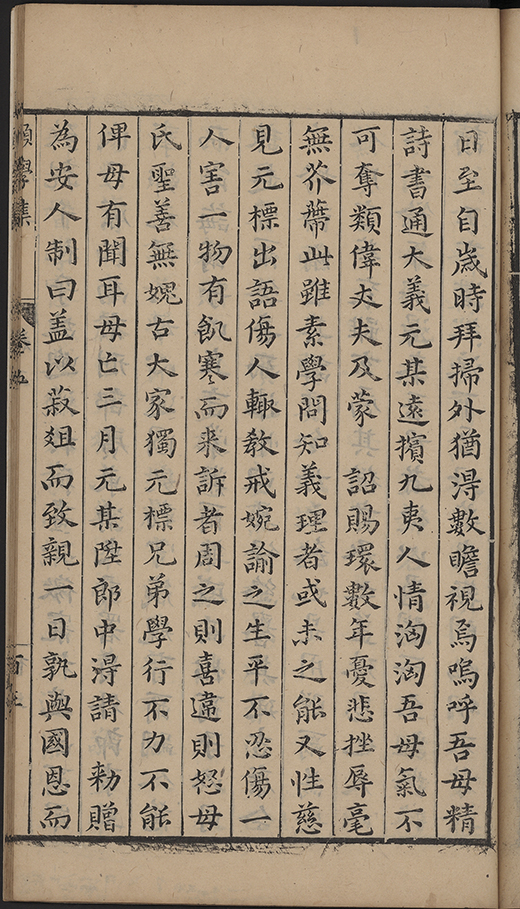 日至自歲時拜掃外猶淂數瞻視焉嗚呼吾母精
詩書通大義元某遠擯九夷人情洶洶吾母氣不
可奪類偉丈夫及蒙　詔賜環數年憂悲挫辱毫
無芥蔕此雖素學問知義理者或未之能又性慈
見元標出語傷人輙敎戒婉諭之生平不忍傷一
人害一物有飢寒而来訴者周之則喜違則怒母
氏聖善無媿古大家獨元標兄弟學行不力不能
俾母有聞耳母亡三月元某陞郎中淂請　勑贈
為安人制曰盖以菽爼而致親一日孰與國恩而
願學集　卷